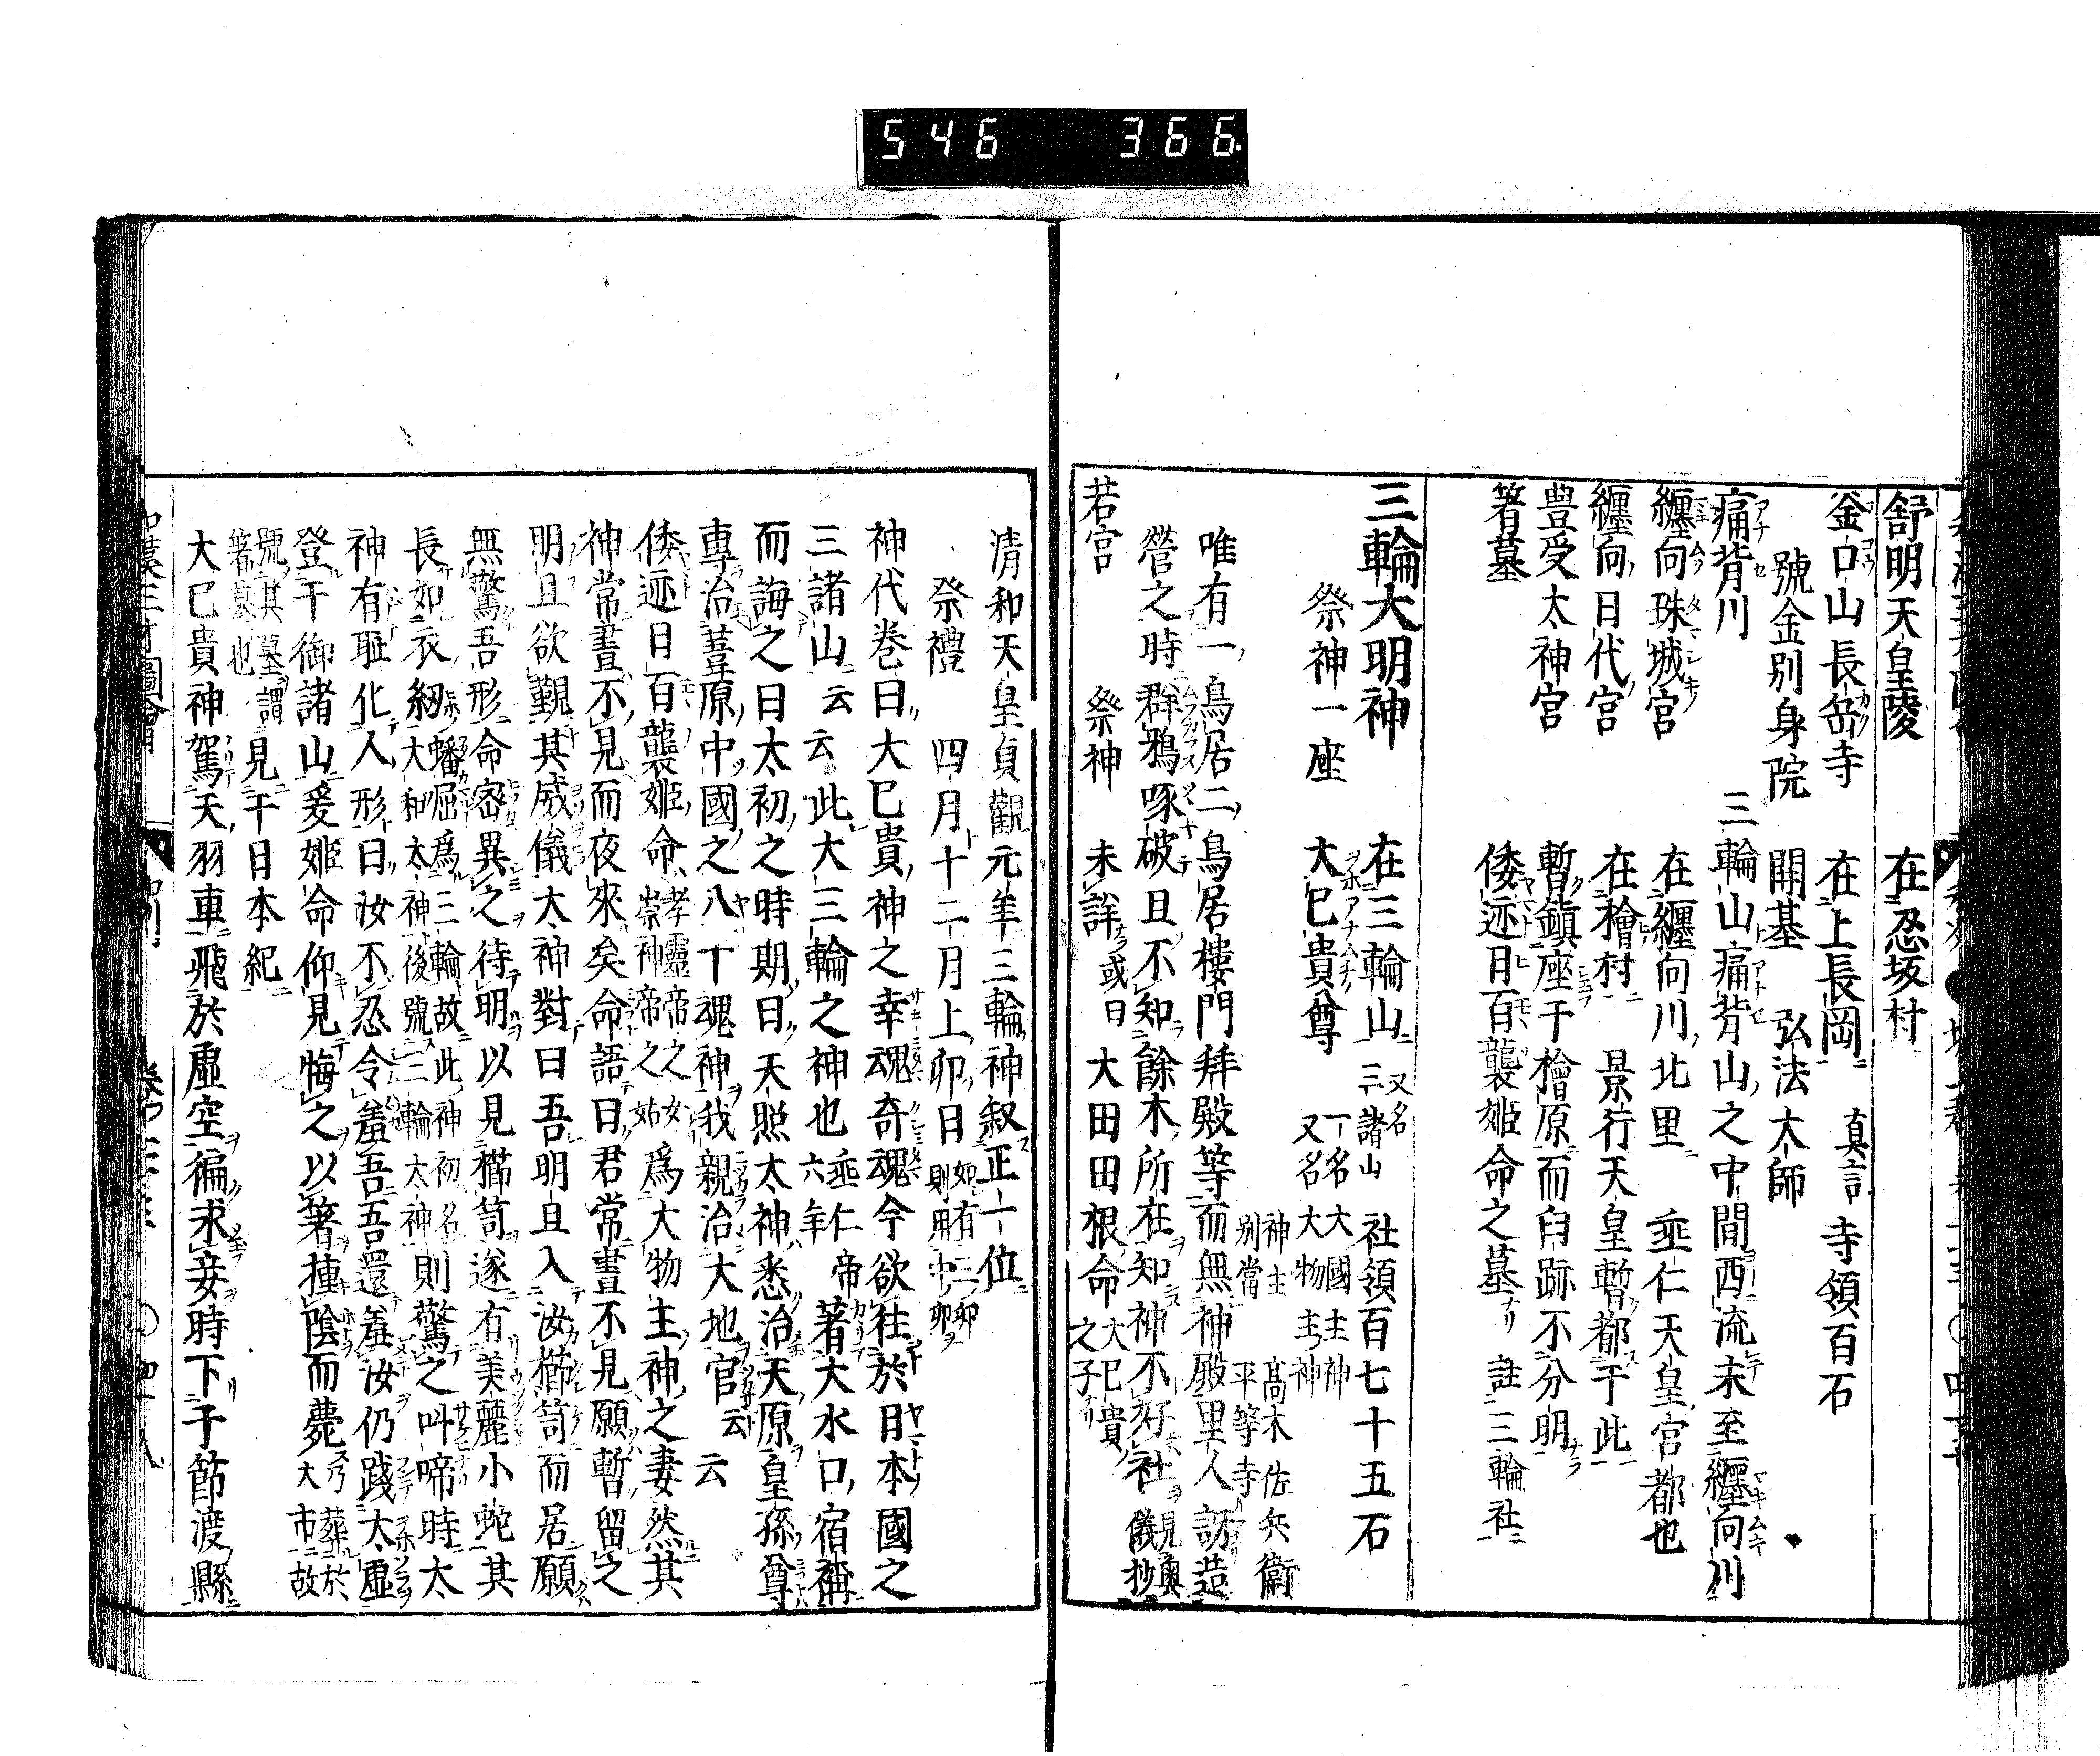 546 366.
舒明天皇陵 在忍坂村
釜口山長岳寺 在上長岡 真言 寺領百石
號金剛身院 開基 弘法大師
痛背川 三輪山痛背山之中間西流末至纏向川
纏向珠城宮 在纏向川北里 垂仁天皇宮都也
纏向日代宮 在檜村 景行天皇暫都于此
豊受太神宮 暫鎮座于檜原而舊跡不分明
箸墓 倭迹日百襲姫命之墓 註三輪社
三輪大明神 在三輪山 又名三諸山 社領百七十五石
祭神一座 大巳貴尊 一名大國主神 又名大物主神 神主 髙木佐兵衞 别當 平等寺
唯有一鳥居二鳥居樓門拜殿等而無神殿里人訪造
營之時群鴉啄破且不知餘木所在知神不好社 見奥儀抄
若宮 祭神 未詳或曰 大田田根命 大巳貴之子
清和天皇貞觀元年三輪神叙正一位
祭禮 四月十二月上卯日 如有三卯則用中卯
神代巻曰大巳貴神之幸魂奇魂今欲往於日本國之
三諸山云云此大三輪之神也 垂仁帝六年 著大水口宿禰
而誨之日太初之時期曰天照太神悉治天原皇孫尊
專治葦原中國之八十魂神我親治大地官云云
倭迹日百襲姫命 孝靈帝之女崇神帝之姑 爲大物主神之妻然其
神常晝不見而夜來矣命語曰君常晝不見願暫留之
明旦欲觀其威儀太神對曰吾明旦入汝櫛笥而居願
無驚吾形命密異之待明以見櫛笥遂有美麗小蛇其
長如衣紉 蟠屈爲三輪故此神初名大和太神後號三輪大神 則驚之叫啼時太
神有耻化人形曰汝不忍令羞吾吾還羞汝仍踐太虚
登于御諸山爰姫命仰見悔之以箸撞陰而薨 乃葬於大市故
號其墓謂箸墓也 見于日本紀
大巳貴神駕天羽車飛於虚空徧求妾時下于節渡縣